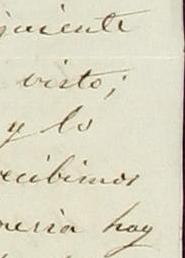 quiente
visto;
y lo
recibimos
neria hoy